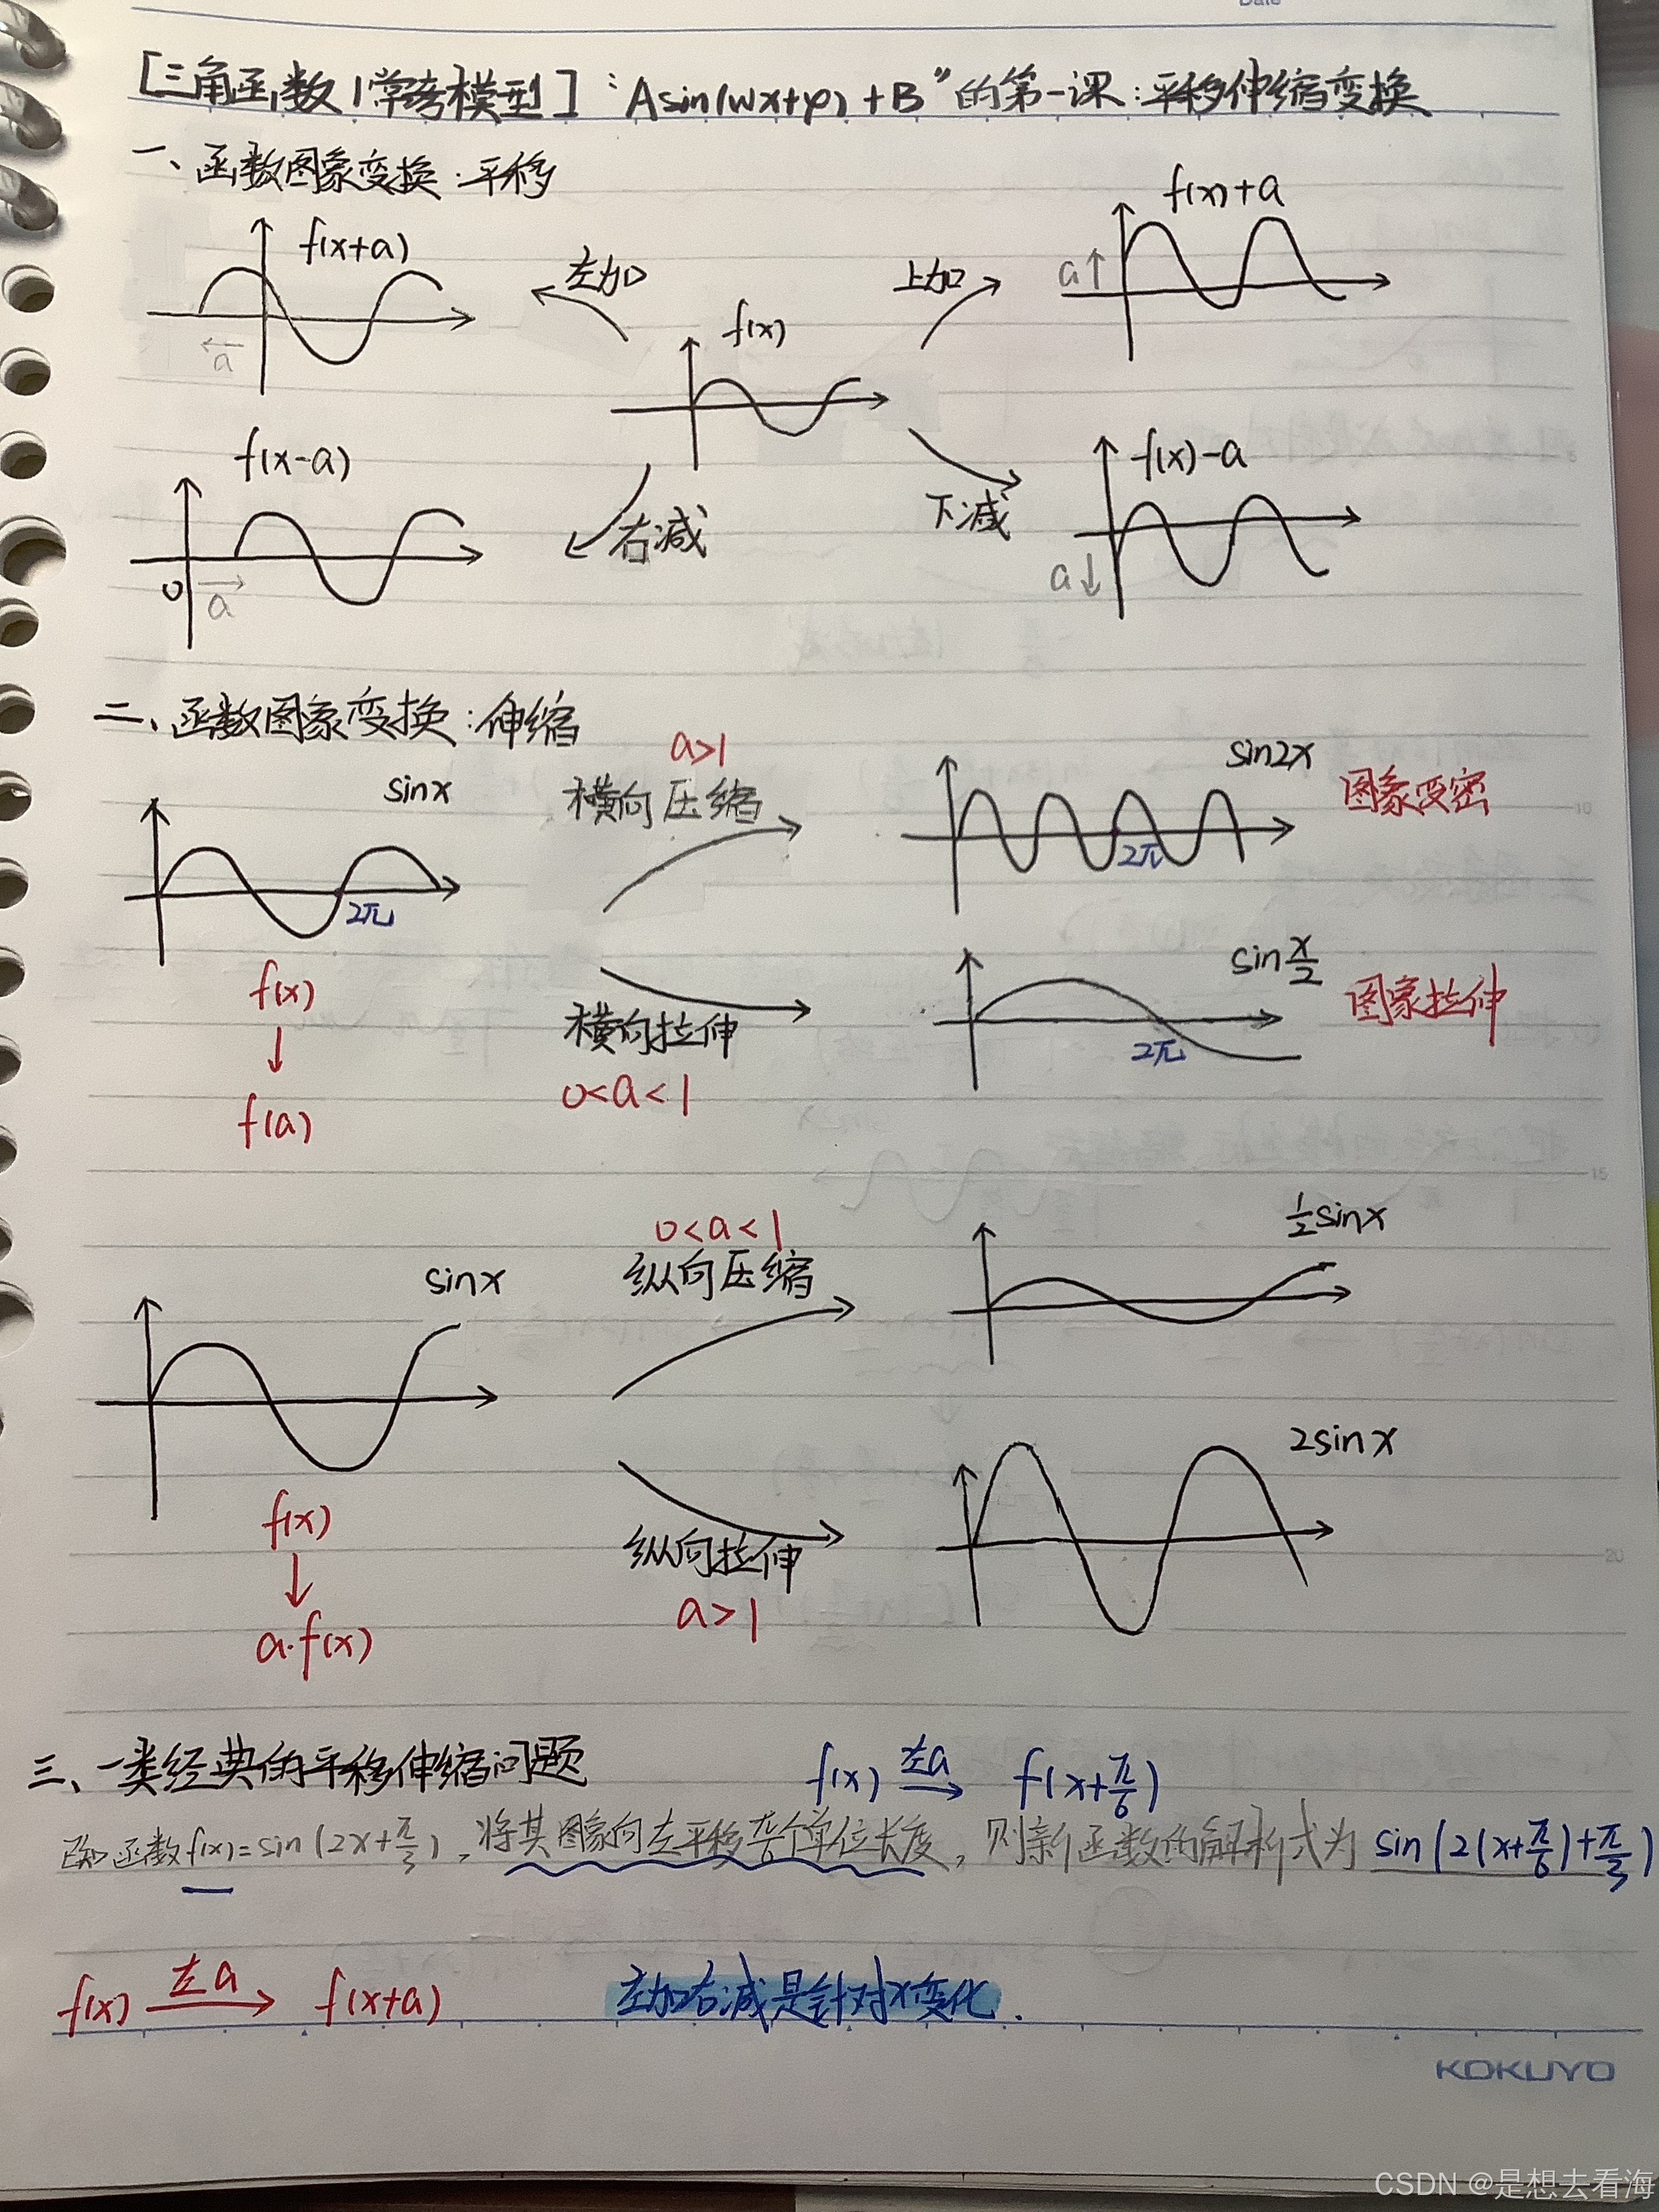 Date
[三角函数|常考模型]："Asin(wx+φ)+B"的第一课：平移伸缩变换
一、函数图象变换：平移
f(x+a)
左加
上加
f(x)+a
a↑
f(x)
←
a
f(x-a)
右减
下减
f(x)-a
0
→
a
a↓
二、函数图象变换：伸缩
sinx
a>1
横向压缩
sin2x
图象变密
2π
2π
f(x)
↓
f(a)
横向拉伸
0<a<1
sin x/2
图象拉伸
2π
sinx
0<a<1
纵向压缩
1/2 sinx
f(x)
↓
a·f(x)
纵向拉伸
a>1
2sinx
三、一类经典的平移伸缩问题
f(x) 左a→ f(x+π/6)
已知函数f(x)=sin(2x+π/3),将其图象向左平移π/6个单位长度，则新函数的解析式为 sin(2(x+π/6)+π/3)
f(x) 左a→ f(x+a)
左加右减是针对x变化.
10
15
20
KOKUYO
CSDN @是想去看海